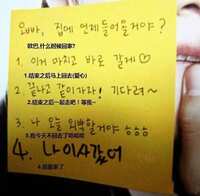 오빠, 집에 언제 들어올거야?
欧巴,什么时候回家?
1. 이거 마치고 바로 갈게♡
1.结束之后马上回去(爱心)
2. 끝나고 같이 가자! 기다려~
2.结束之后一起走吧!等我~
3. 나 오늘 외박할거야 ㅎㅎㅎ
3.我今天不回去了哈哈哈
4. 나 이사갔어
4.我搬家了